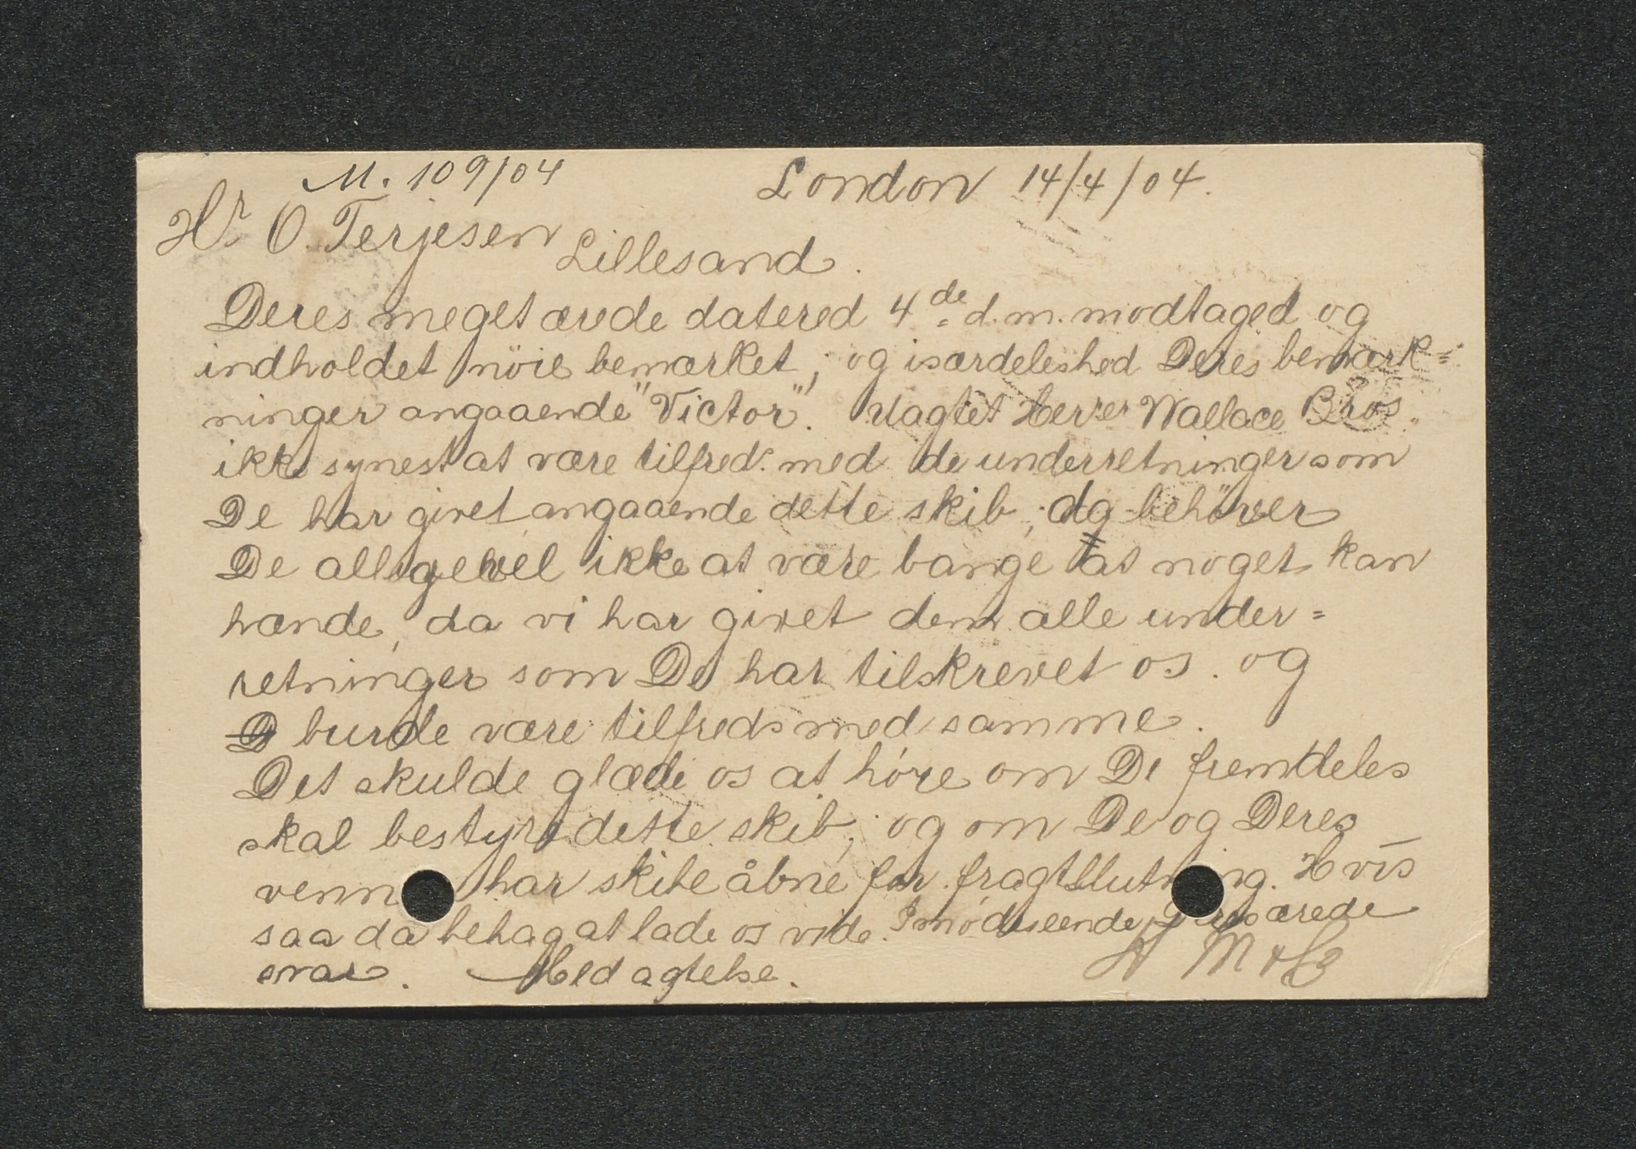 M. 109/04
London 14/4/04.
Hr O. Terjesen
Lillesand.
Deres meget ærede datered 4de d.m. modtaged og
indholdet nöie bemærket, og isærdeleshed Deres bemærk=
ninger angaaende "Victor". Uagtet Herrer Wallace Bros.
ikke synest at være tilfreds med de underretninger som
De har givet angaaende dette skib, behöver
De alligevel ikke at være bange at noget kan
hænde, da vi har givet dem alle under=
retninger som De har tilskrevet os. og
burde være tilfreds med samme.
Det skulde glæde os at höre om De fremdeles
skal bestyre dette skib, og om De og Deres
venn har skibe åbne for fragtslutning. Hvis
saa da behag at lade os vide. Imödeseende Deres ærede
svar. Med agtelse.
M & Co